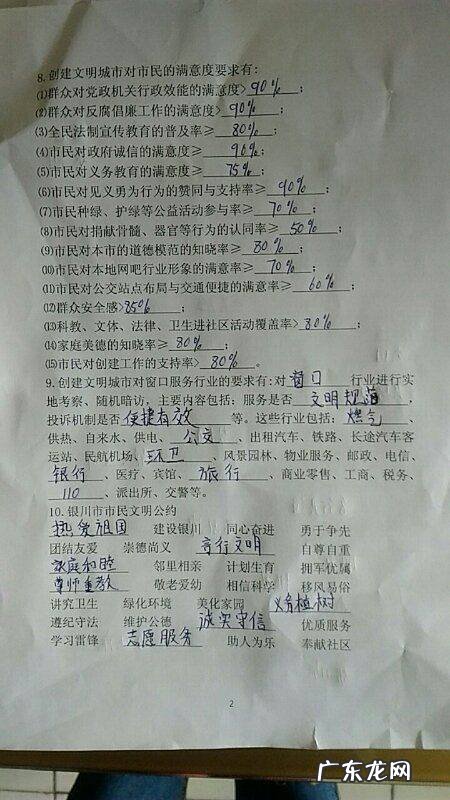 8.创建文明城市对市民的满意度要求有:
⑴群众对党政机关行政效能的满意度>90%;
⑵群众对反腐倡廉工作的满意度>90%;
⑶全民法制宣传教育的普及率≥80%;
⑷市民对政府诚信的满意度≥90%;
⑸市民对义务教育的满意度≥75%;
⑹市民对见义勇为行为的赞同与支持率≥90%;
⑺市民种绿、护绿等公益活动参与率≥70%;
⑻市民对捐献骨髓、器官等行为的认同率≥50%;
⑼市民对本市的道德模范的知晓率≥80%;
⑽市民对本地网吧行业形象的满意率≥70%;
⑾市民对公交站点布局与交通便捷的满意率≥60%;
⑿群众安全感>85%;
⒀科教、文体、法律、卫生进社区活动覆盖率>80%;
⒁家庭美德的知晓率≥80%;
⒂市民对创建工作的支持率>80%。
9.创建文明城市对窗口服务行业的要求有:对窗口行业进行实
地考察、随机暗访,主要内容包括:服务是否文明规范,
投诉机制是否便捷有效等。这些行业包括:燃气、
供热、自来水、供电、公交、出租汽车、铁路、长途汽车客
运站、民航机场、环卫、风景园林、物业服务、邮政、电信、
银行、医疗、宾馆、旅行、商业零售、工商、税务、
110、派出所、交警等。
10.银川市市民文明公约
热爱祖国 建设银川 同心奋进 勇于争先
团结友爱 崇德尚义 言行文明 自尊自重
家庭和睦 邻里相亲 计划生育 拥军优属
尊师重教 敬老爱幼 相信科学 移风易俗
讲究卫生 绿化环境 美化家园 义务植树
遵纪守法 维护公德 诚实守信 优质服务
学习雷锋 志愿服务 助人为乐 奉献社区
2
广东龙网